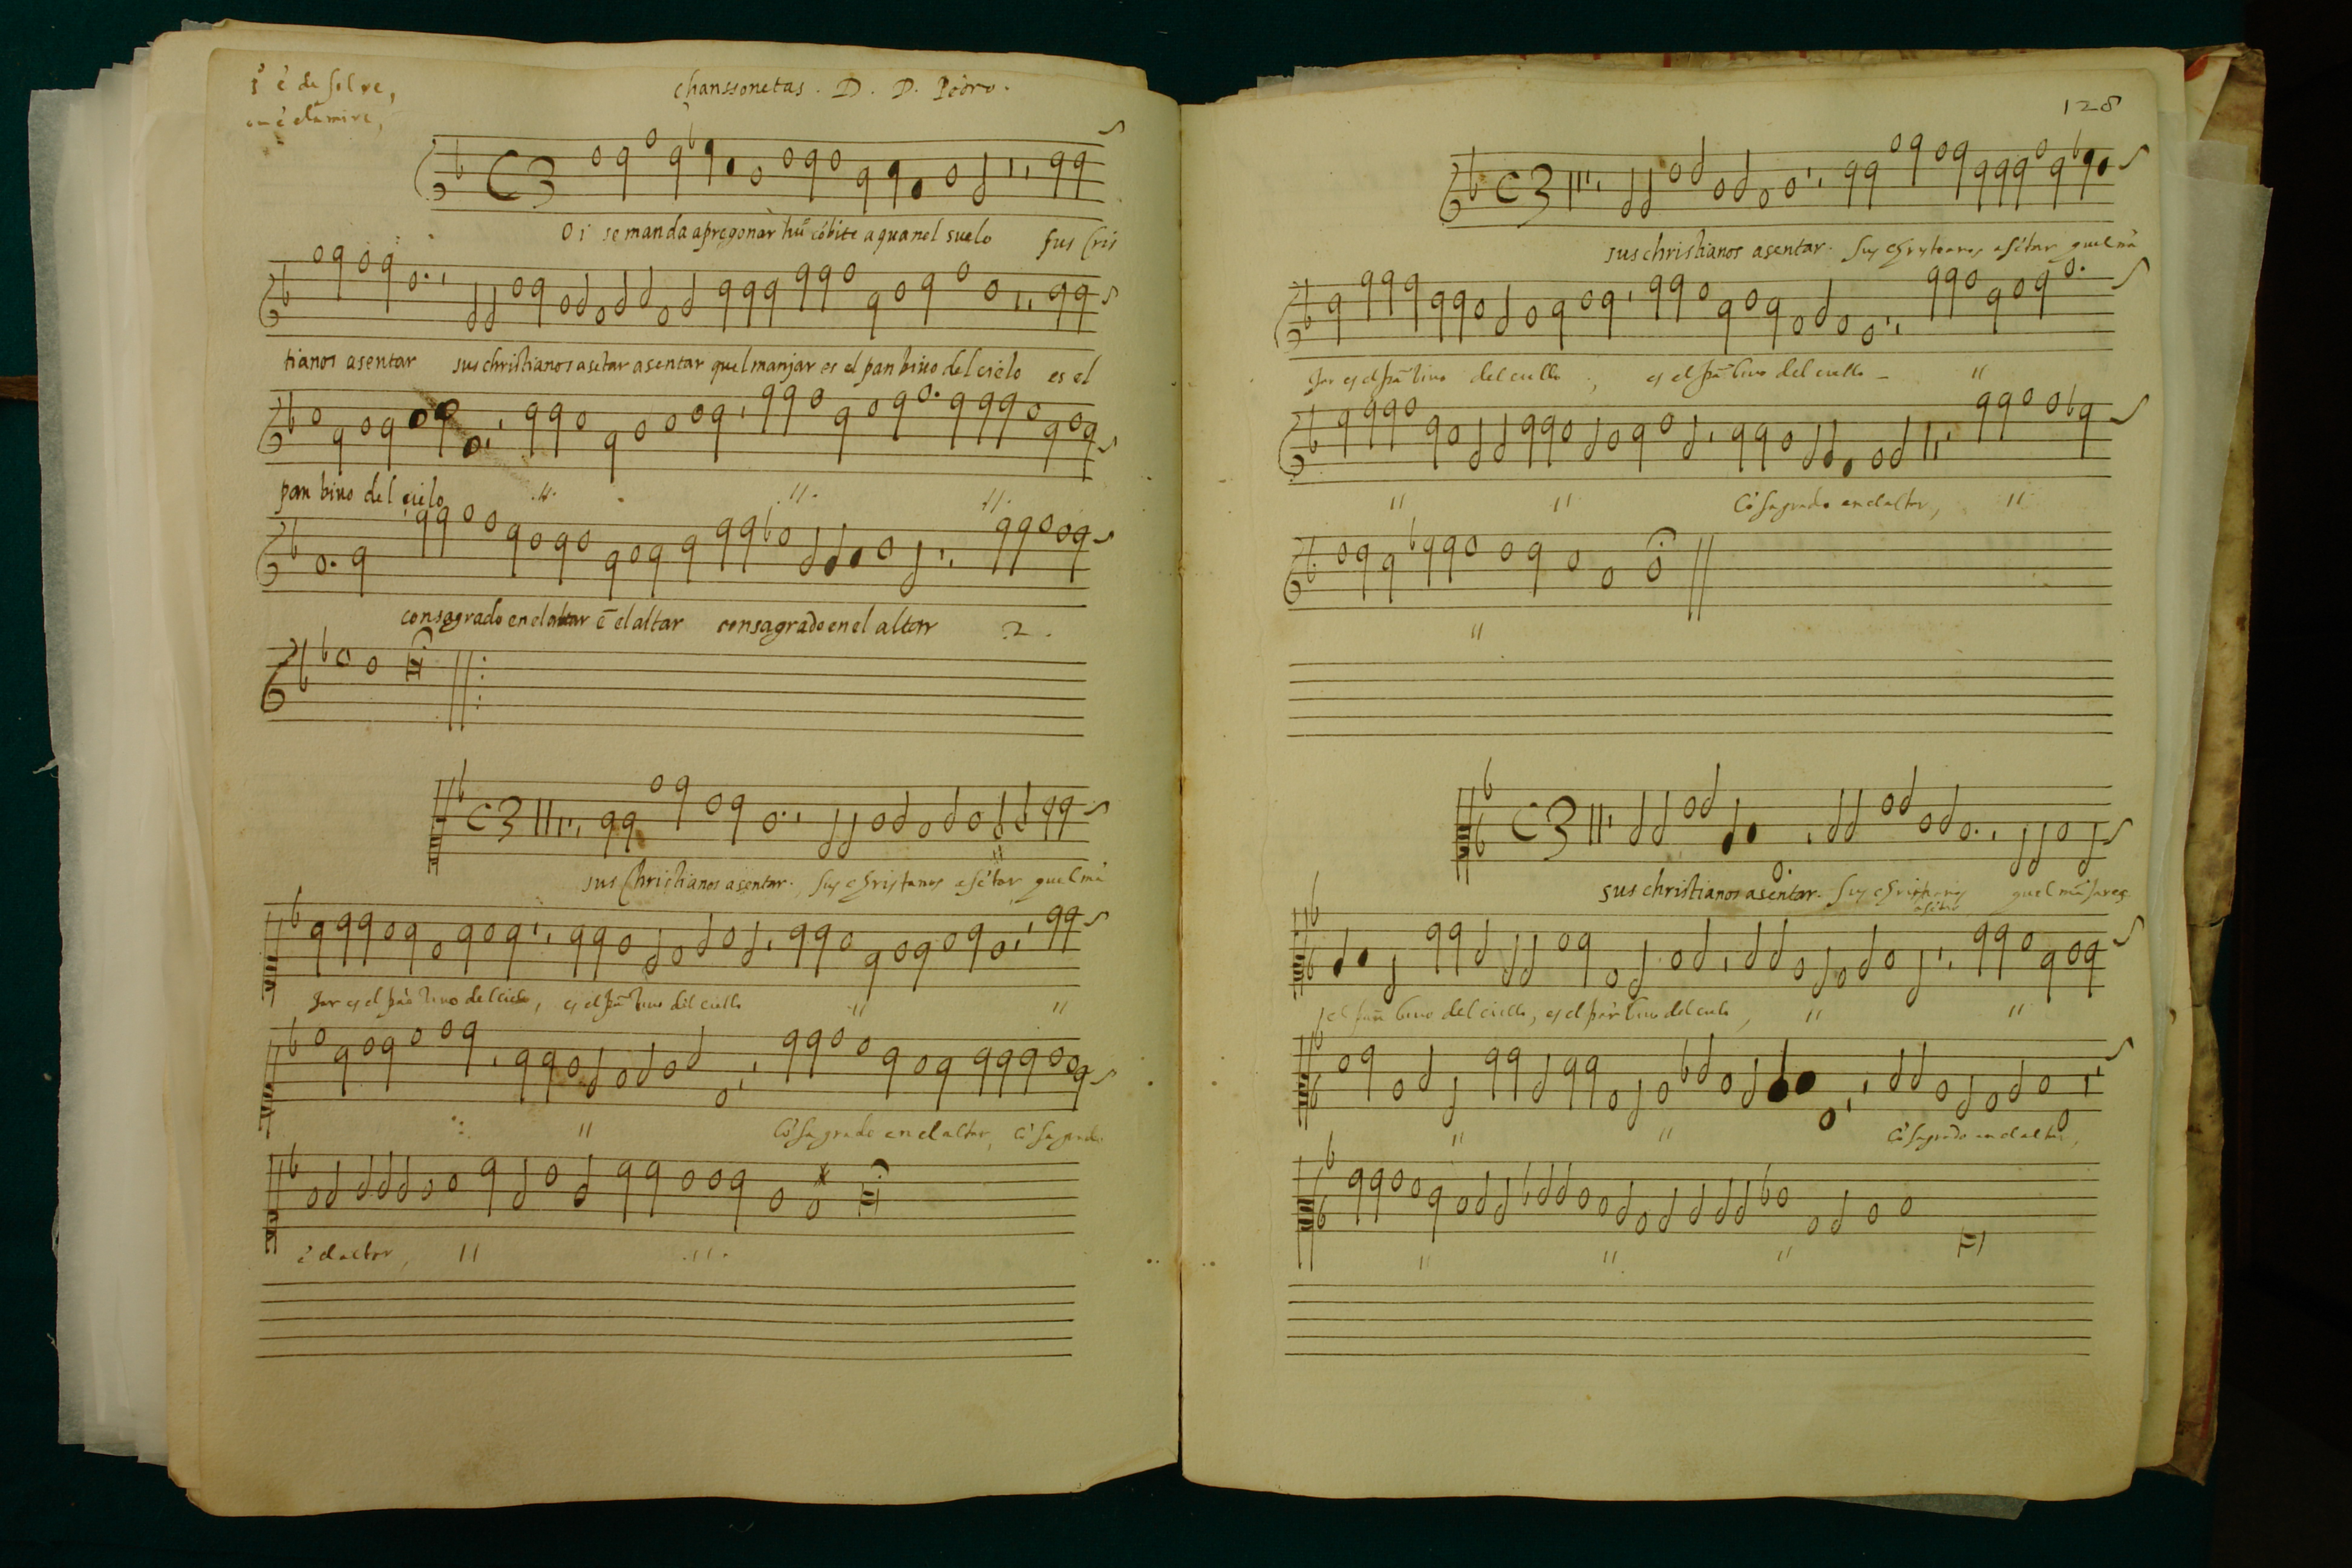 chanssonetas . D . D . Pedro .
Oi se manda apregonar hũ cõbite aquanel suelo sus Cris
tianos asentar sus christianos asẽtar asentar quel manjar es el pan bivo del cielo es el
pan bivo del cielo .//. .//. .//.
consagrado en el altar ẽ el altar consagrado en el altar .2.
sus Christianos asentar . sus christianos asẽtar quel mã
jar es el pã bivo del cielo, es el pã bivo del ciello // //
// cõsagrado en el altar, cõsagrado
ẽ el altar, // .//.
128
sus christianos asentar . sus christianos asẽtar quel mã
jar es el pã bivo del ciello , es el pã bivo del ciello _ //
// // Cõsagrado en el altar, //
//
sus christianos asentar . sus christianos asẽtar quel mãjar es
el pan bivo del ciello, es el pan bivo del cielo, // //
// // Cõsagrado en el altar,
// // //